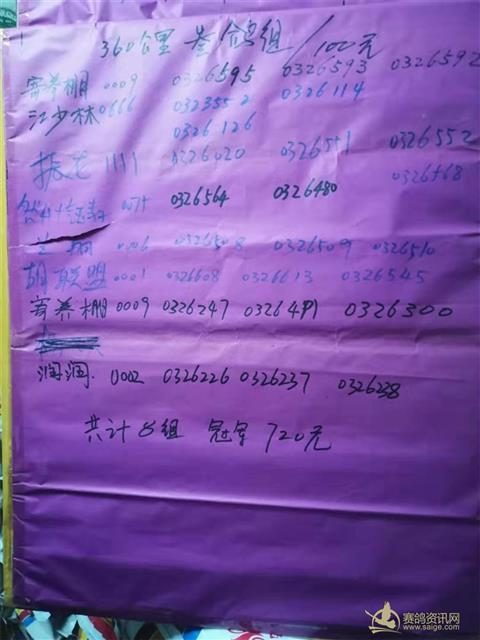 360公里 叁鸽组/100元
寄养棚 0009 0326595 0326593 0326592
江少林 0666 0323552 0326114
0326126
振龙 1111 0326020 0326551 0326552
0326568
0326564 0326480
0326508 0326509 0326510
胡联盟 0001 0326608 0326613 0326545
寄养棚 0009 0326247 0326491 0326300
润润. 0002 0326226 0326237 0326238
共计8组 冠军 720元
赛鸽资讯网
www.saige.com